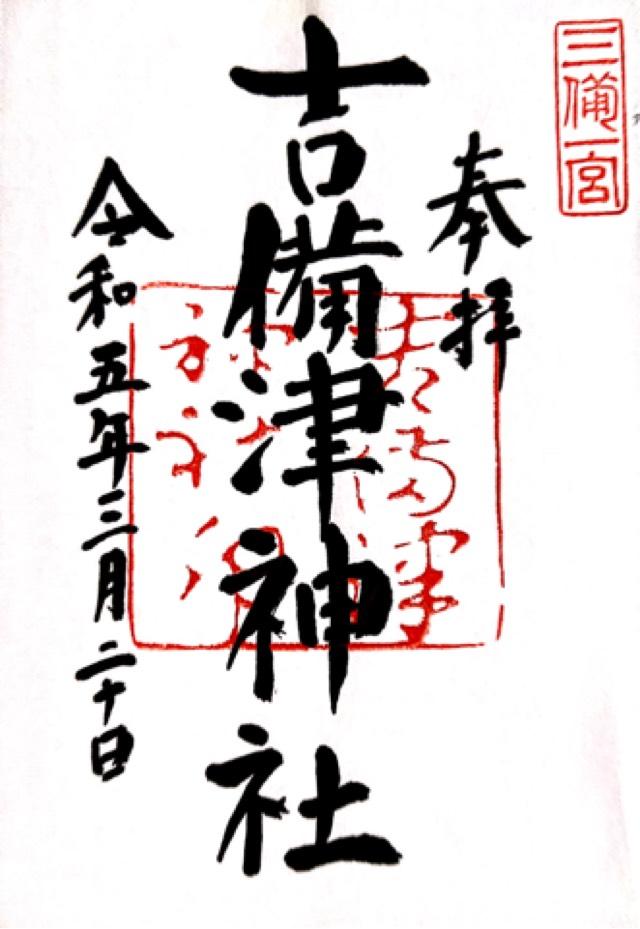 三備一宮
奉拝
吉備津神社
令和五年三月二十日